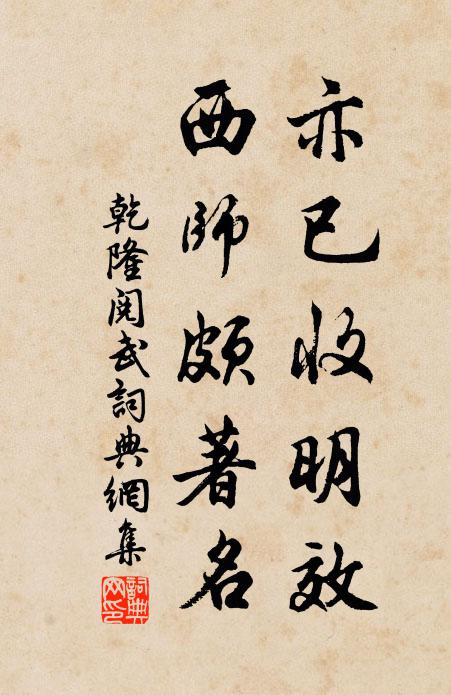 亦已收明效
西師頗著名
乾隆閱武詞典網集
詞典網印